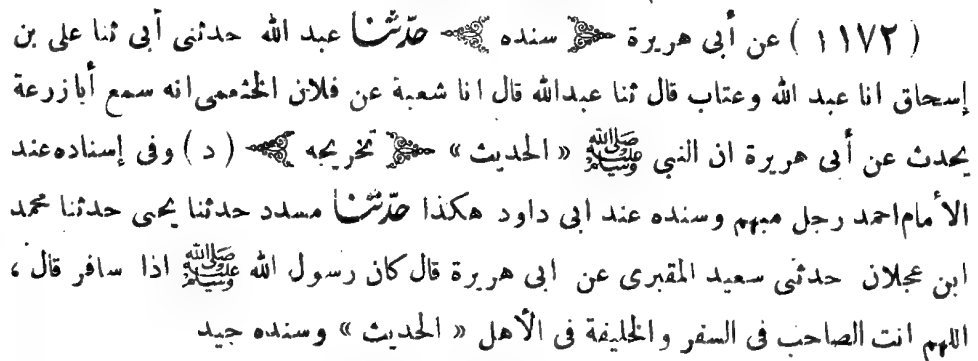 ( ١١٧٢ ) عن أبى هريرة ﴿ سنده ﴾ حدّثنا عبد الله حدثنى أبى ثنا على بن
إسحاق انا عبد الله وعتاب قال ثنا عبدالله قال انا شعبة عن فلان الخثعمى انه سمع أبازرعة
يحدث عن أبى هريرة ان النبى ﷺ « الحديث » ﴿ تخريجه ﴾ ( د ) وفى إسناده عند
الأمام احمد رجل مبهم وسنده عند ابى داود هكذا حدّثنا مسدد حدثنا يحى حدثنا محمد
ابن عجلان حدثنى سعيد المقبرى عن ابى هريرة قال كان رسول الله ﷺ اذا سافر قال ،
اللهم انت الصاحب فى السفر والخليفة فى الأهل « الحديث » وسنده جيد